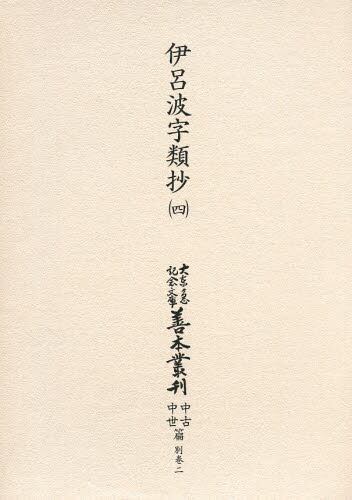 伊呂波字類抄(四)
大東急
記念文庫
善本叢刊
中古
中世
篇
別巻二